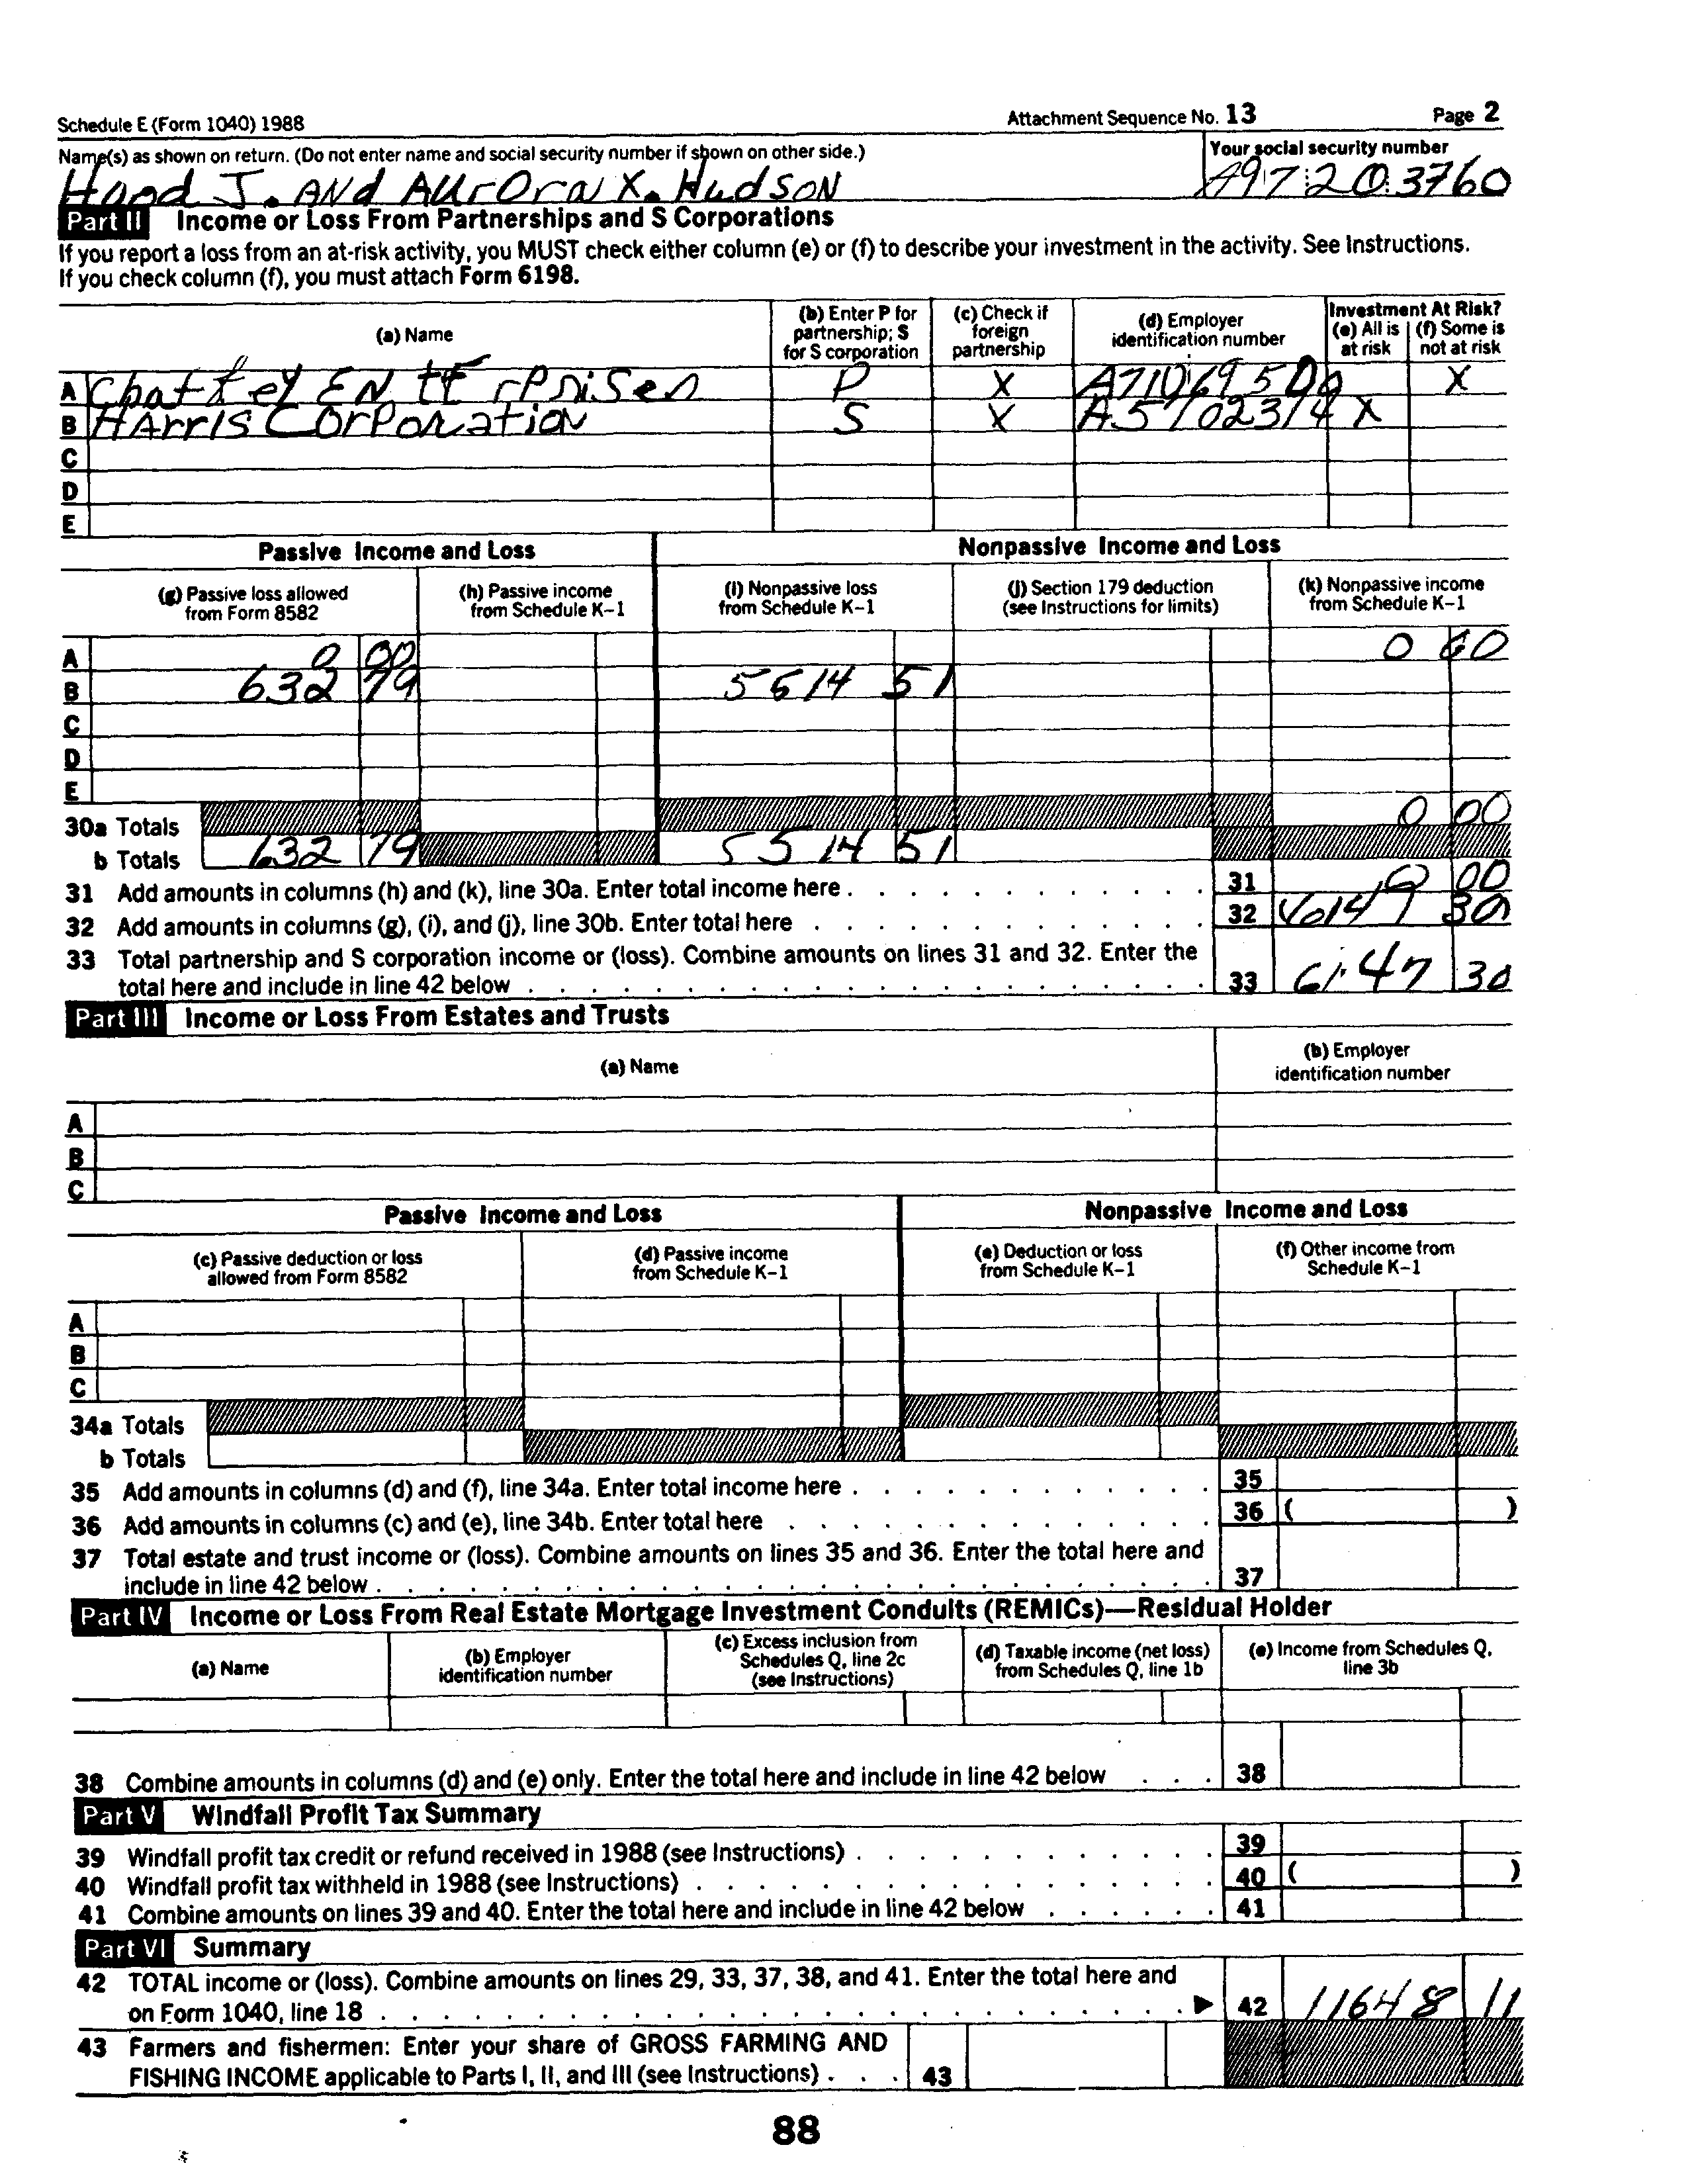 Schedule E (Form 1040) 1988 Attachment Sequence No. 13 Page 2
Name(s) as shown on return. (Do not enter name and social security number if shown on other side.) Your social security number
J. AND AurOra X. HudSON A97 20 3760
Part II Income or Loss From Partnerships and S Corporations
If you report a loss from an at-risk activity, you MUST check either column (e) or (f) to describe your investment in the activity. See Instructions.
If you check column (f), you must attach Form 6198.
(a) Name
(b) Enter P for partnership; S for S corporation
(c) Check if foreign partnership
(d) Employer identification number
Investment At Risk?
(e) All is at risk
(f) Some is not at risk
A P X X
B HArris COrPOration S X A5702314 X
C
D
E
Passive Income and Loss Nonpassive Income and Loss
(g) Passive loss allowed from Form 8582
(h) Passive income from Schedule K-1
(i) Nonpassive loss from Schedule K-1
(j) Section 179 deduction (see Instructions for limits)
(k) Nonpassive income from Schedule K-1
A 0 00 0 00
B 632 79 5514 51
C
D
E
30a Totals 0 00
b Totals 632 79 5514 51
31 Add amounts in columns (h) and (k), line 30a. Enter total income here . . . 31 0 00
32 Add amounts in columns (g), (i), and (j), line 30b. Enter total here . . . 32 30
33 Total partnership and S corporation income or (loss). Combine amounts on lines 31 and 32. Enter the
total here and include in line 42 below . . . 33 6147 30
Part III Income or Loss From Estates and Trusts
(a) Name
(b) Employer identification number
A
B
C
Passive Income and Loss Nonpassive Income and Loss
(c) Passive deduction or loss allowed from Form 8582
(d) Passive income from Schedule K-1
(e) Deduction or loss from Schedule K-1
(f) Other income from Schedule K-1
A
B
C
34a Totals
b Totals
35 Add amounts in columns (d) and (f), line 34a. Enter total income here . . . 35
36 Add amounts in columns (c) and (e), line 34b. Enter total here . . . 36 ( )
37 Total estate and trust income or (loss). Combine amounts on lines 35 and 36. Enter the total here and
include in line 42 below . . . 37
Part IV Income or Loss From Real Estate Mortgage Investment Conduits (REMICs)—Residual Holder
(a) Name
(b) Employer identification number
(c) Excess inclusion from Schedules Q, line 2c (see Instructions)
(d) Taxable income (net loss) from Schedules Q, line 1b
(e) Income from Schedules Q, line 3b
38 Combine amounts in columns (d) and (e) only. Enter the total here and include in line 42 below . . . 38
Part V Windfall Profit Tax Summary
39 Windfall profit tax credit or refund received in 1988 (see Instructions) . . . 39
40 Windfall profit tax withheld in 1988 (see Instructions) . . . 40 ( )
41 Combine amounts on lines 39 and 40. Enter the total here and include in line 42 below . . . 41
Part VI Summary
42 TOTAL income or (loss). Combine amounts on lines 29, 33, 37, 38, and 41. Enter the total here and
on Form 1040, line 18 . . . ▶ 42 11648 11
43 Farmers and fishermen: Enter your share of GROSS FARMING AND
FISHING INCOME applicable to Parts I, II, and III (see Instructions) . . . 43
88